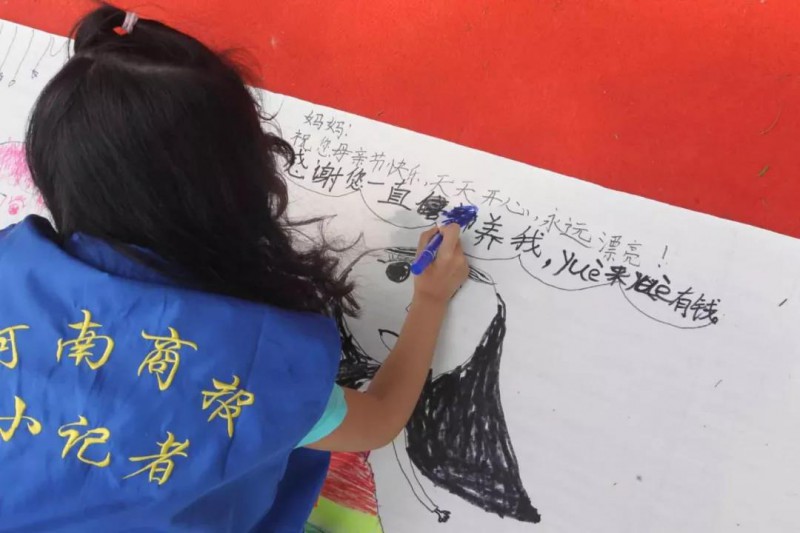 妈妈:
祝您母亲节快乐,天天开心,永远漂亮!
感谢您一直养我,yuè来yuè有钱。
河南商报
小记者